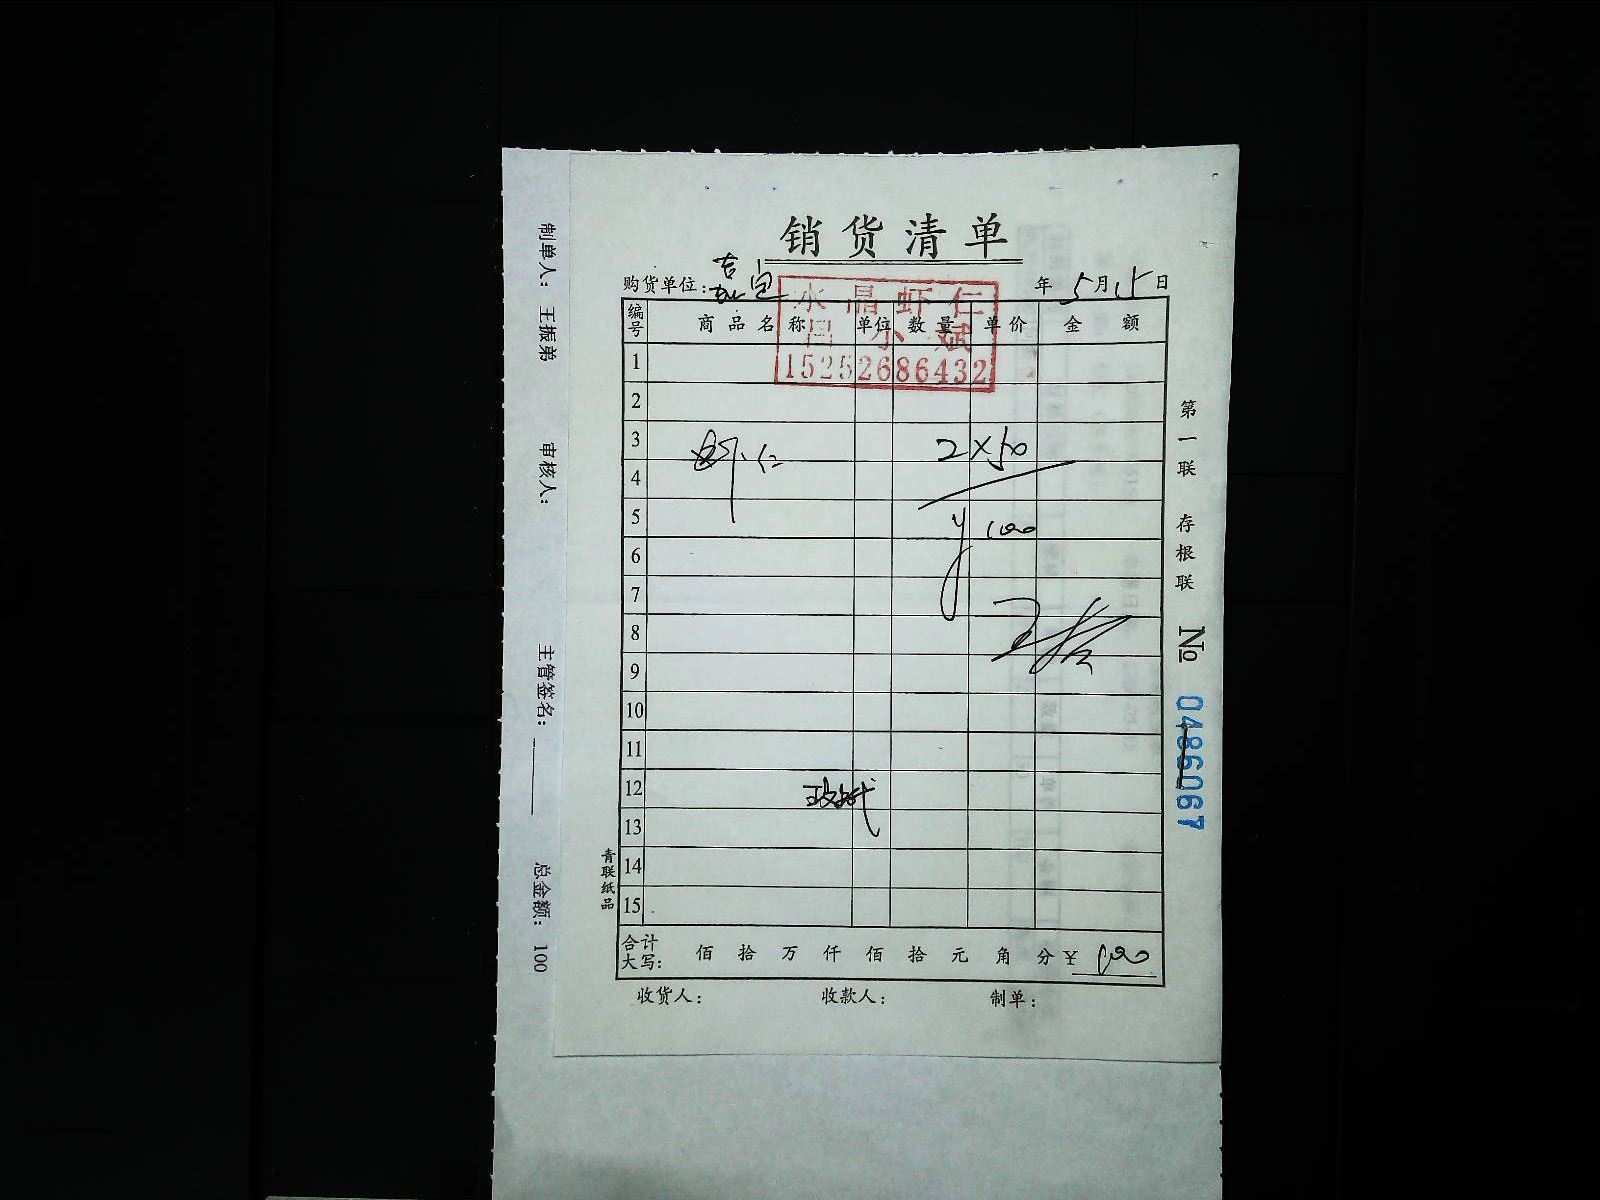 销货清单
购货单位：嘉宜 年5月15日
水晶虾仁
吕小斌
15252686432
编号 商品名称 单位 数量 单价 金额
1
2
3 虾仁 2×50
4
5 ¥100
6
7
8
9
10
11
12
13
14
15
合计大写： 佰 拾 万 仟 佰 拾 元 角 分 ¥ 100
收货人： 收款人： 制单：
第一联 存根联 № 0486067
青联纸品
制单人： 王振弟 审核人： 主管签名： 总金额： 100